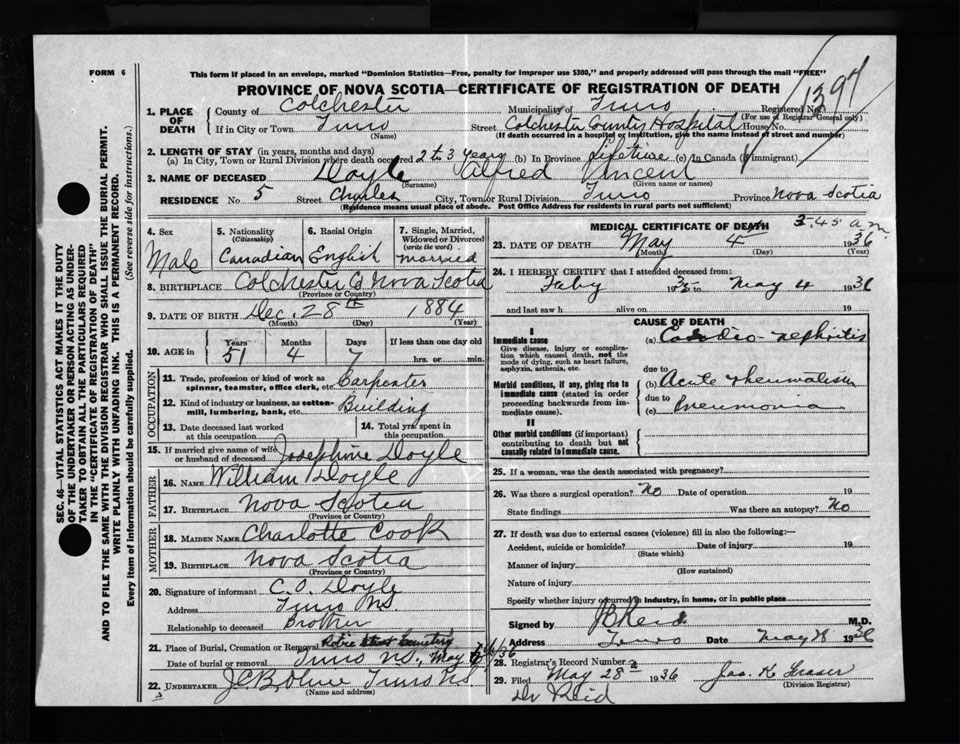 FORM 6
This form if placed in an envelope, marked "Dominion Statistics—Free, penalty for improper use $300," and properly addressed will pass through the mail "FREE"
PROVINCE OF NOVA SCOTIA—CERTIFICATE OF REGISTRATION OF DEATH
1397
1. PLACE OF DEATH
County of Colchester Municipality of Truro Registered No.
(For use of Registrar General only)
If in City or Town Truro Street Colchester County Hospital House No.
(Name) (If death occurred in a hospital or institution, give the name instead of street and number)
2. LENGTH OF STAY (in years, months and days)
(a) In City, Town or Rural Division where death occurred 2 to 3 years (b) In Province Lifetime (c) In Canada (if immigrant)
3. NAME OF DECEASED Doyle Alfred Vincent
(Surname) (Given name or names)
RESIDENCE No 5 Street City, Town or Rural Division Truro Province Nova Scotia
(Residence means usual place of abode. Post Office Address for residents in rural parts not sufficient)
4. Sex
Male
5. Nationality
(Citizenship)
Canadian
6. Racial Origin
English
7. Single, Married, Widowed or Divorced
(write the word)
married
8. BIRTHPLACE Colchester Co Nova Scotia
(Province or Country)
9. DATE OF BIRTH Dec. 28th 1884
(Month) (Day) (Year)
10. AGE in
Years Months Days If less than one day old
51 4 7 hrs. or min.
OCCUPATION
11. Trade, profession or kind of work as spinner, teamster, office clerk, etc. Carpenter
12. Kind of industry or business, as cotton-mill, lumbering, bank, etc. Building
13. Date deceased last worked at this occupation
14. Total yrs. spent in this occupation
15. If married give name of wife or husband of deceased Josephine Doyle
FATHER
16. NAME William Doyle
17. BIRTHPLACE Nova Scotia
(Province or Country)
MOTHER
18. MAIDEN NAME Charlotte Cook
19. BIRTHPLACE Nova Scotia
(Province or Country)
20. Signature of informant C. O. Doyle
Address Truro NS.
Relationship to deceased Brother
21. Place of Burial, Cremation or Removal Robie Street Cemetery
Date of burial or removal Truro NS., May 6/36
22. UNDERTAKER Truro NS
(Name and address)
MEDICAL CERTIFICATE OF DEATH
3.45 a m
23. DATE OF DEATH May 4th 1936
(Month) (Day) (Year)
24. I HEREBY CERTIFY that I attended deceased from:
1935 to May 4 1936
and last saw h alive on 19
CAUSE OF DEATH
I
Immediate cause
Give disease, injury or complication which caused death, not the mode of dying, such as heart failure, asphyxia, asthenia, etc.
(a) Cardio-nephritis
due to
Morbid conditions, if any, giving rise to immediate cause (stated in order proceeding backwards from immediate cause).
(b) Acute rheumatism
due to
(c) Pneumonia
II
Other morbid conditions (if important) contributing to death but not causally related to immediate cause.
25. If a woman, was the death associated with pregnancy?
26. Was there a surgical operation? No Date of operation 19
State findings Was there an autopsy? No
27. If death was due to external causes (violence) fill in also the following:—
Accident, suicide or homicide? Date of injury 19
(State which)
Manner of injury
(How sustained)
Nature of injury
Specify whether injury occurred in industry, in home, or in public place
Signed by Reid M.D.
Address Truro Date May 8 1936
28. Registrar's Record Number
29. Filed May 28th 1936 Jas. K Fraser
(Division Registrar)
Dr Reid
SEC. 46—VITAL STATISTICS ACT MAKES IT THE DUTY
OF THE UNDERTAKER OR PERSON ACTING AS UNDERTAKER TO OBTAIN ALL THE PARTICULARS REQUIRED
IN THE "CERTIFICATE OF REGISTRATION OF DEATH"
AND TO FILE THE SAME WITH THE DIVISION REGISTRAR WHO SHALL ISSUE THE BURIAL PERMIT.
WRITE PLAINLY WITH UNFADING INK. THIS IS A PERMANENT RECORD.
Every item of information should be carefully supplied. (See reverse side for instructions.)